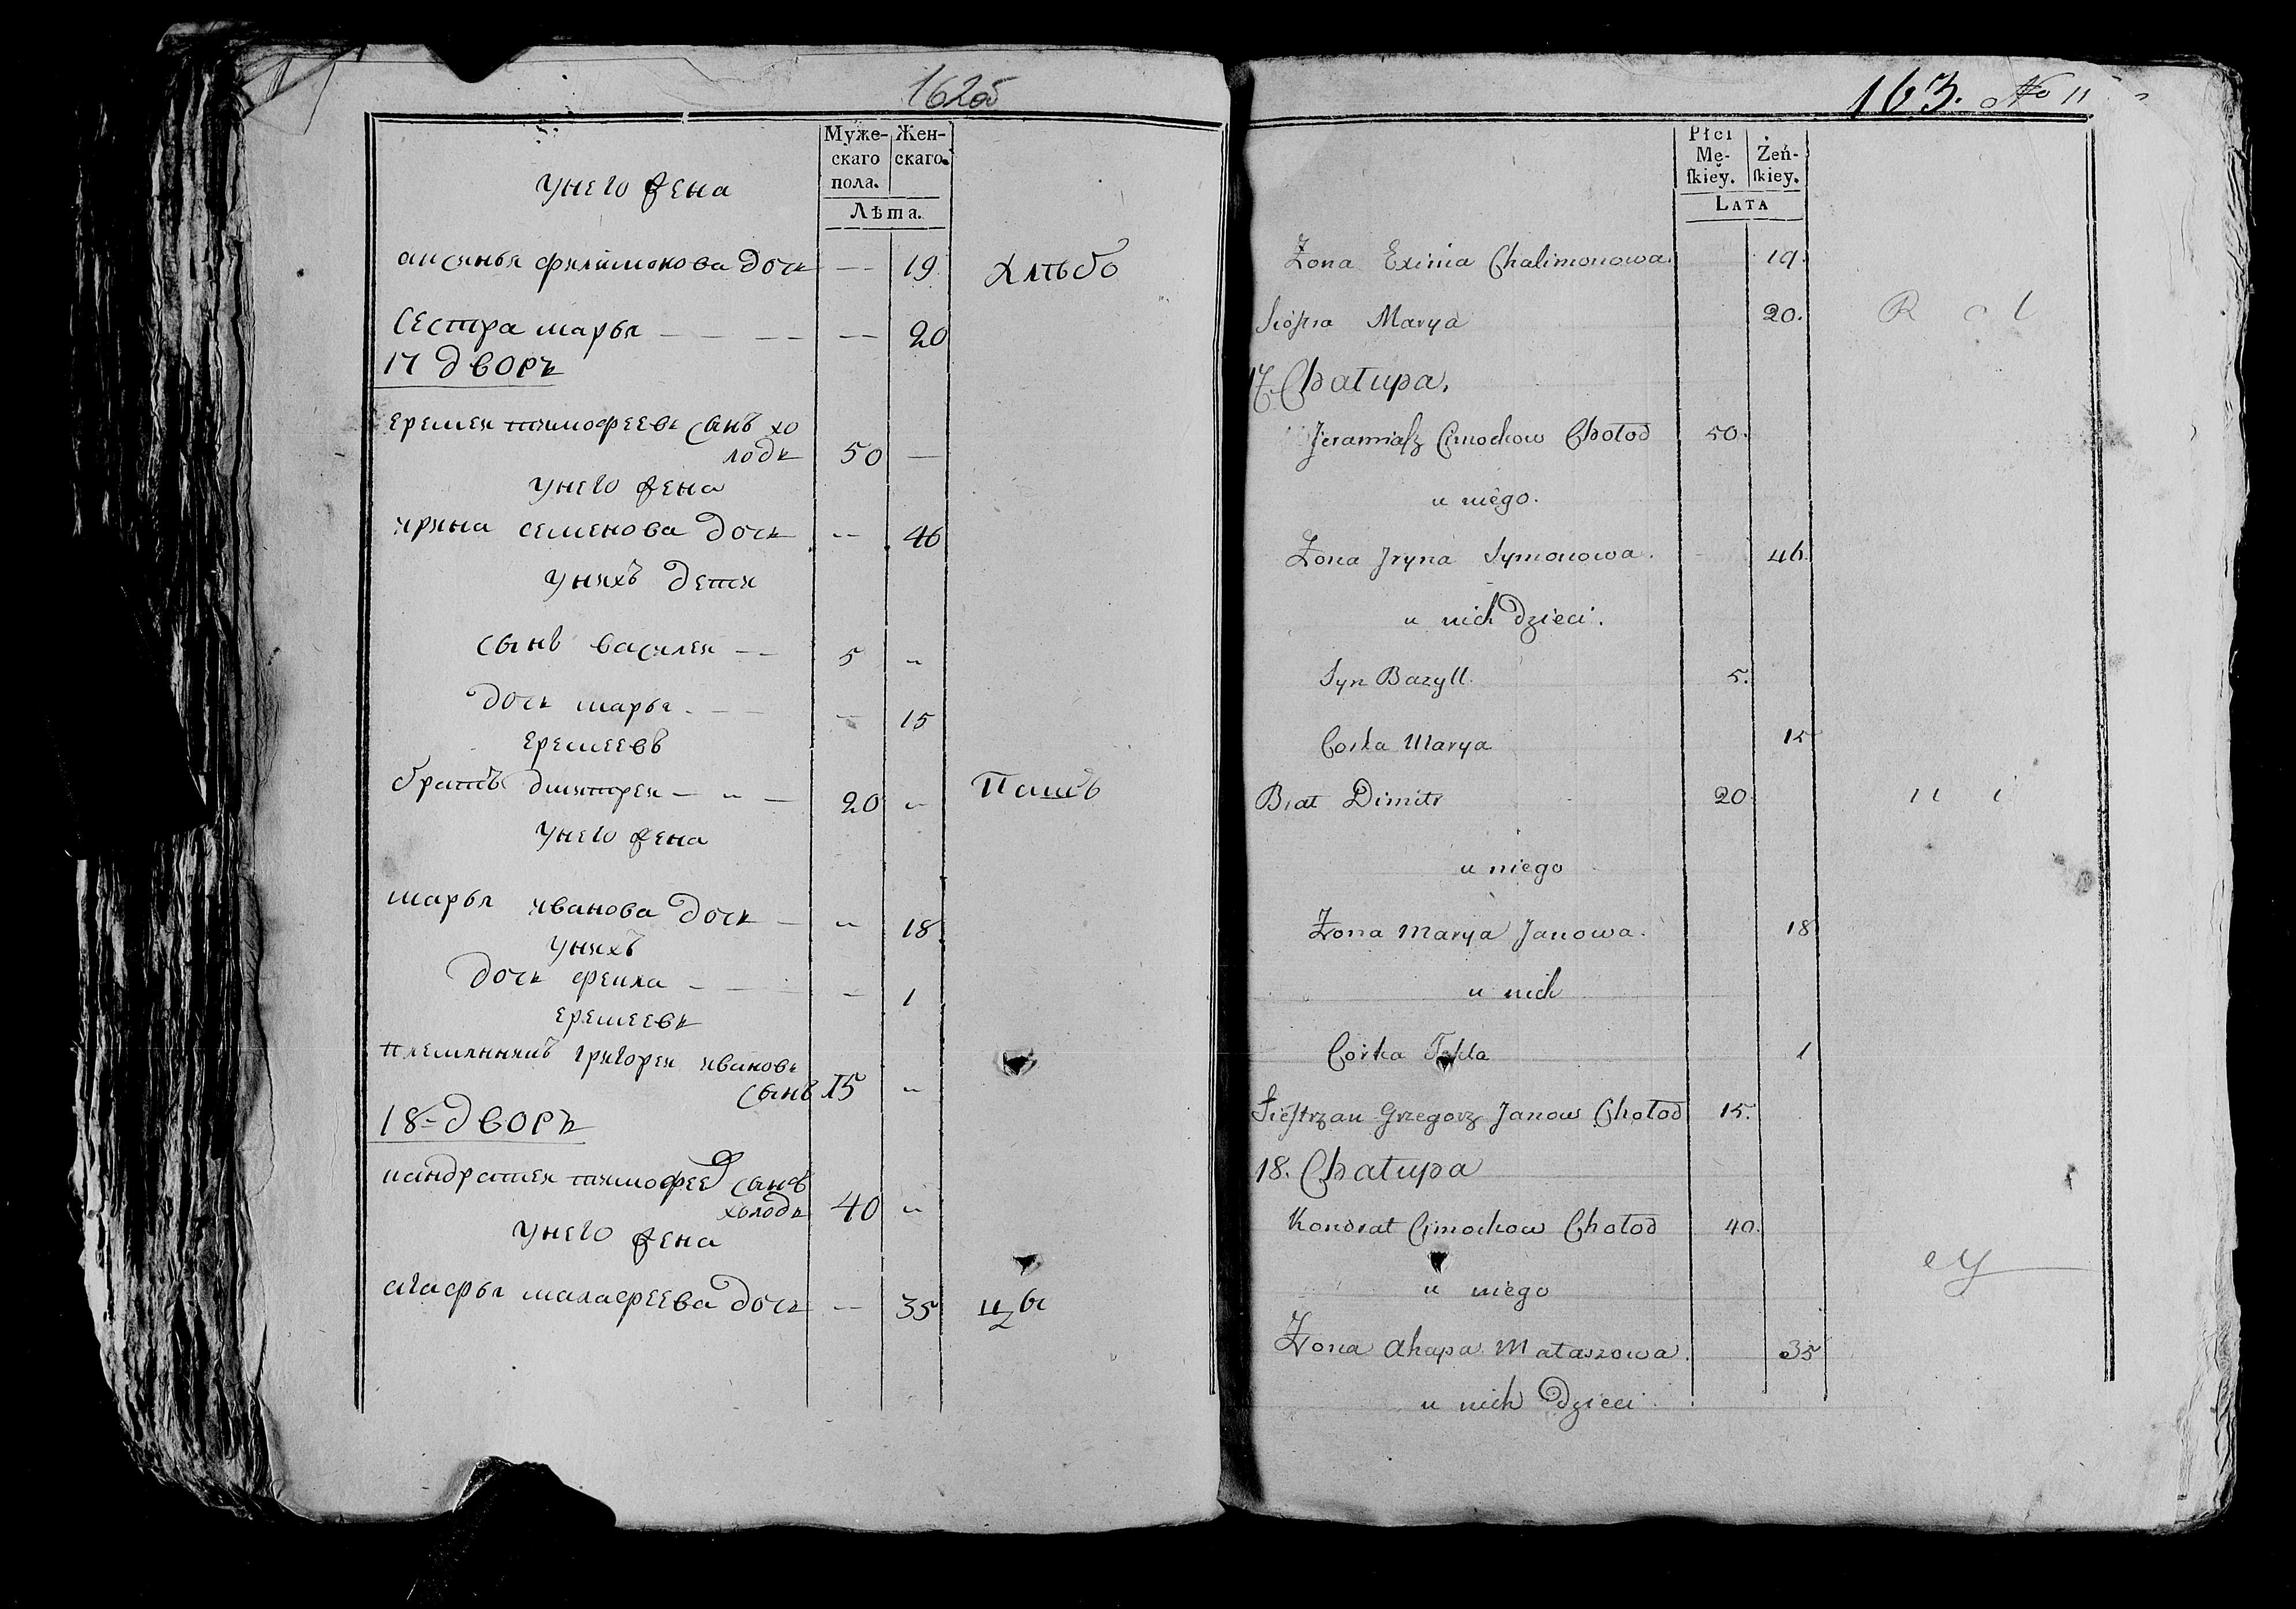 162об
Муже- Жен-
скаго скаго.
пола.
Лѣта.
у него жена
аксинья филимонова дочь — 19 хлѣбо
сестра марья — — — — — 20
17 дворъ
еремеи тимофеевъ сынъ хо
лодъ 50 —
у него жена
ирина семенова дочь -- 46
у нихъ дети
сынъ василеи — — 5 „
дочь марья - — — — 15
еремеевъ
братъ дмитреи — „ — 20 „ Паш
у него жена
марья иванова дочь — „ 18
у нихъ
дочь фекла - — — - 1
еремеевъ
племянникъ григореи ивановъ
сынъ 15 „
18-дворъ
кандратеи тимофее сынъ
холодъ 40 „
у него жена
агафья малафеева дочь — 35 цы
163. № 11
Płci
Mę- Żeń-
ſkiey. ſkiey.
LATA
Żona Exinia Chalimonowa. 19.
Siostra Marya 20. R o l
17. Chałupa.
Jeramiasz Cimochow Chołod 50.
u niego.
Żona Jryna Symonowa. 46.
u nich Dzieci.
Syn Bazyll. 5.
Corka Marya 15
Brat Dimitr 20 n i
u niego
Żona Marya Janowa. 18
u nich
Corka Tekla 1
Siestrzan Grzegorz Janow Chołod 15.
18. Chałupa
Kondrat Cimochow Chołod 40.
u niego ey
Żona Ahapa Mataszowa. 35
u nich Dzieci.